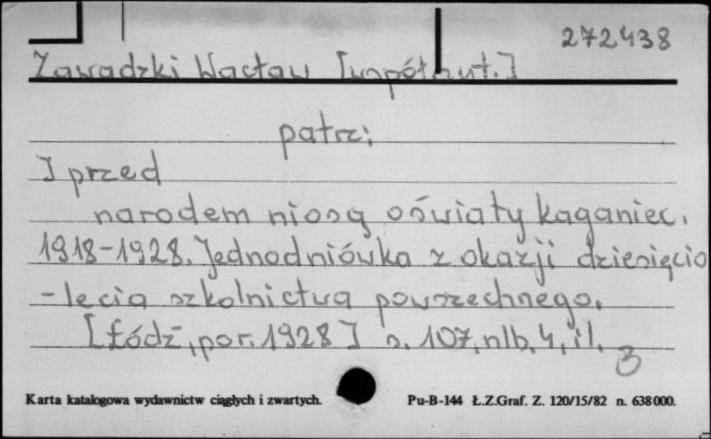 272438
Zawadzki Wacław [współaut.]
patrz:
I przed
narodem niosą oświaty kaganiec.
1918-1928. Jednodniówka z okazji dziesięcio
-lecia szkolnictwa powszechnego.
[Łódź, por. 1928] s. 107, nlb. 4, il.
B
Karta katalogowa wydawnictw ciągłych i zwartych. Pu-B-144 Ł.Z.Graf. Z. 120/15/82 n. 638000.